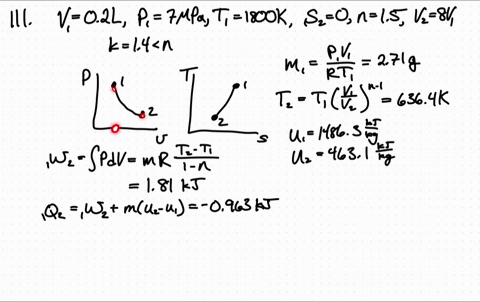 111. V₁=0.2L, P₁=7MPa, T₁=1800K, S₂=0, n=1.5, V₂=8V₁
k=1.4<n
m₁ = P₁V₁/RT₁ = 2.71g
T₂ = T₁(V₁/V₂)ⁿ⁻¹ = 636.4K
u₁=1486.3 kJ/kg
u₂=463.1 kJ/kg
P 1 2 v
T 1 2 s
₁W₂ = ∫PdV = mR (T₂-T₁)/(1-n)
= 1.81 kJ
₁Q₂ = ₁W₂ + m(u₂-u₁) = -0.963 kJ